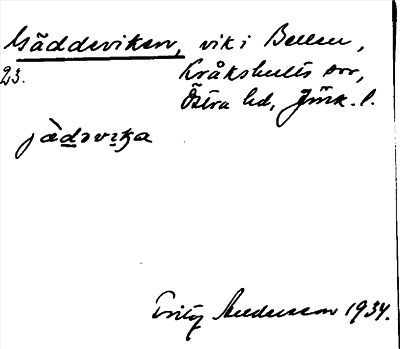 Gäddeviken, vik i Bellen,
23. Kråkshults sn,
Östra hd, Jönk. l.
jàdəvika
Fritz Andersson 1934.